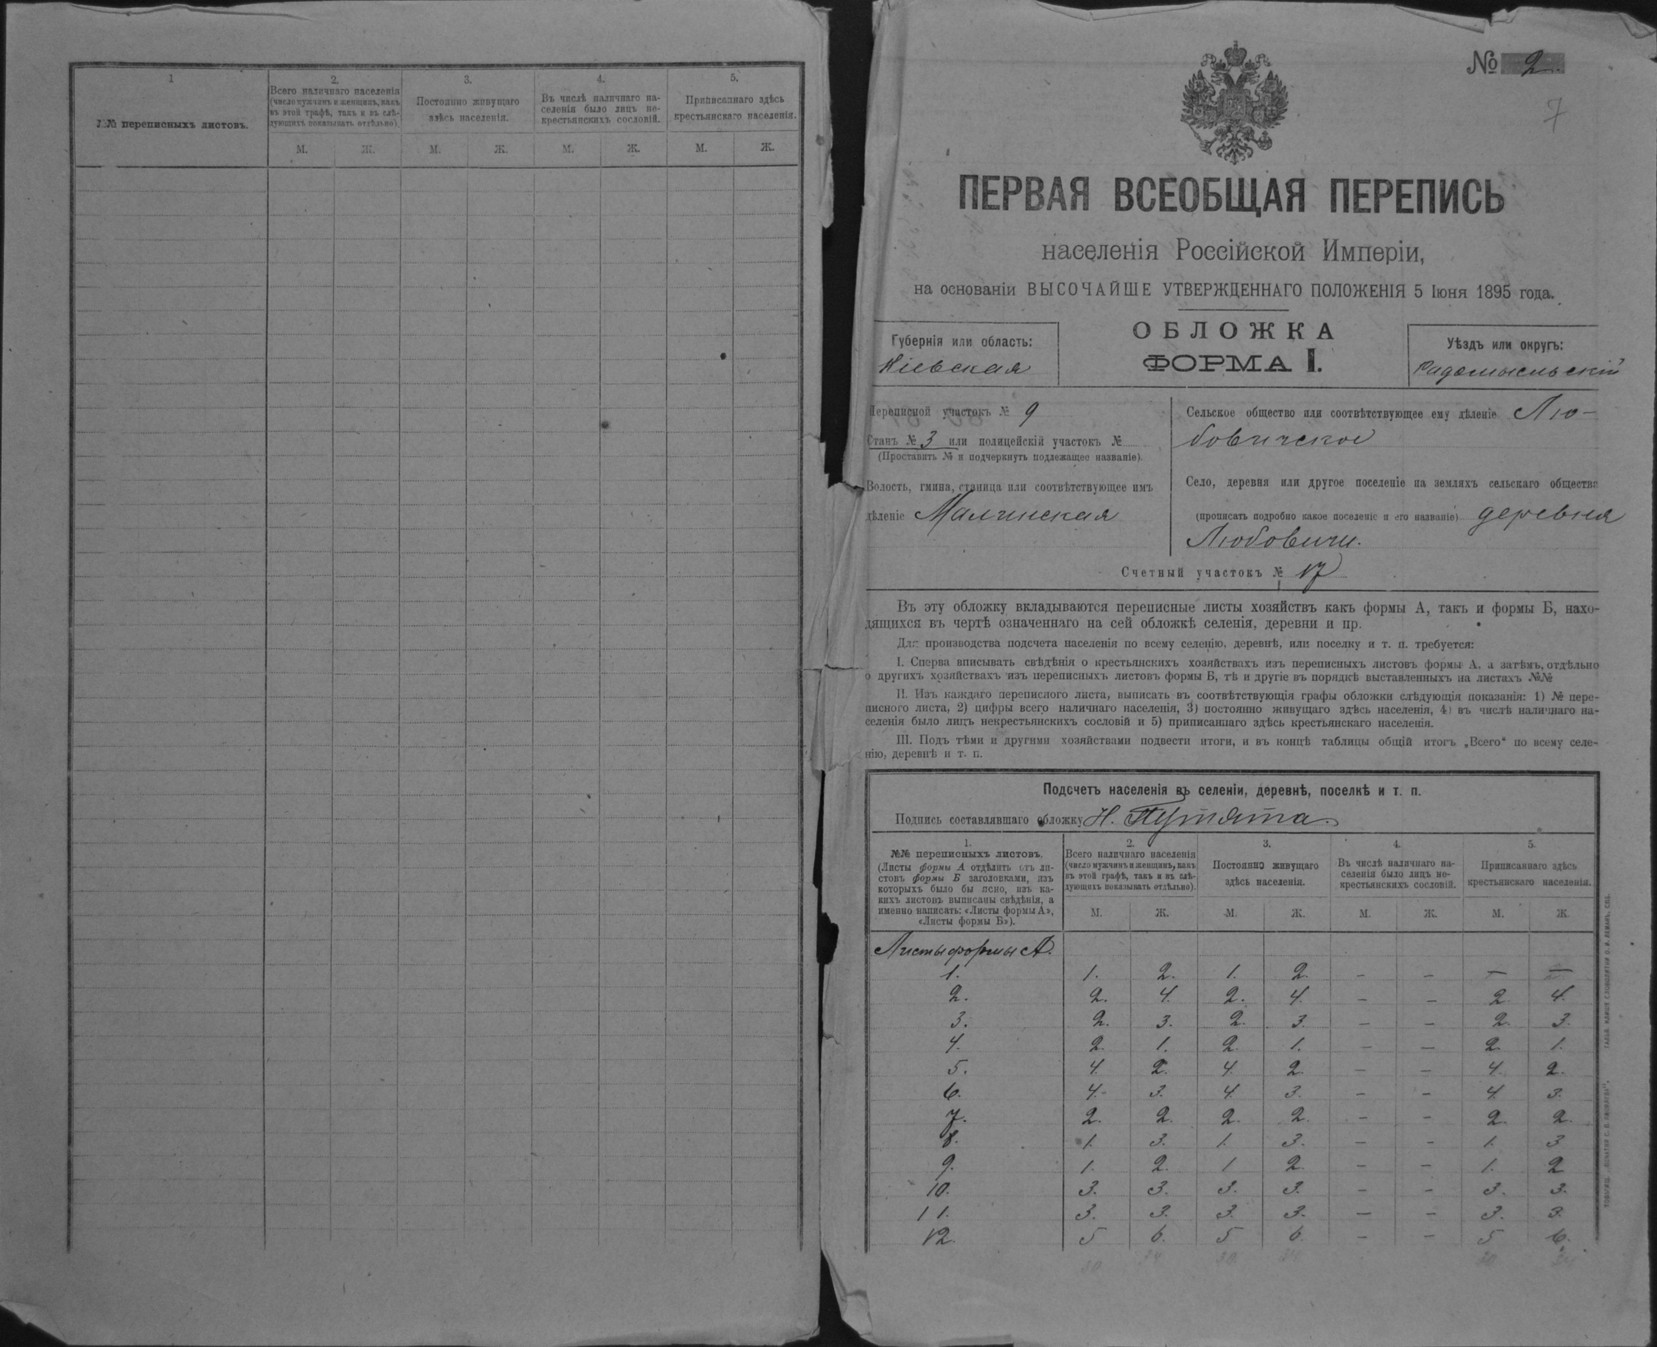 1
№№ переписныхъ листовъ.
2.
Всего наличнаго населенія
(число мужчинъ и женщинъ, какъ
въ этой графѣ, такъ и въ слѣ-
дующихъ показывать отдѣльно).
3.
Постоянно живущаго
здѣсь населенія.
4.
Въ числѣ наличнаго на-
селенія было лицъ не-
крестьянскихъ сословій.
5.
Приписаннаго здѣсь
крестьянскаго населенія.
М. Ж. М. Ж. М. Ж. М. Ж.
№ 2.
7
ПЕРВАЯ ВСЕОБЩАЯ ПЕРЕПИСЬ
населенія Россійской Имперіи,
на основаніи ВЫСОЧАЙШЕ УТВЕРЖДЕННАГО ПОЛОЖЕНІЯ 5 Іюня 1895 года.
ОБЛОЖКА
ФОРМА I.
Губернія или область:
Кіевская
Уѣздъ или округъ:
Радомысльскій
Переписной участокъ № 9
Станъ № 3 или полицейскій участокъ №
(Проставить № и подчеркнуть подлежащее названіе).
Волость, гмина, станица или соотвѣтствующее имъ
дѣленіе Малинская
Сельское общество или соотвѣтствующее ему дѣленіе Лю-
бовичское
Село, деревня или другое поселеніе на земляхъ сельскаго общества
(прописать подробно какое поселеніе и его названіе) деревня
Любовичи.
Счетный участокъ № 17
Въ эту обложку вкладываются переписные листы хозяйствъ какъ формы А, такъ и формы Б, нахо-
дящихся въ чертѣ означеннаго на сей обложкѣ селенія, деревни и пр.
Для производства подсчета населенія по всему селенію, деревнѣ, или поселку и т. п. требуется:
I. Сперва вписывать свѣдѣнія о крестьянскихъ хозяйствахъ изъ переписныхъ листовъ формы А, а затѣмъ, отдѣльно
о другихъ хозяйствахъ изъ переписныхъ листовъ формы Б, тѣ и другіе въ порядкѣ выставленныхъ на листахъ №№
II. Изъ каждаго переписного листа, выписать въ соотвѣтствующія графы обложки слѣдующія показанія: 1) № пере-
писного листа, 2) цифры всего наличнаго населенія, 3) постоянно живущаго здѣсь населенія, 4) въ числѣ наличнаго на-
селенія было лицъ некрестьянскихъ сословій и 5) приписаннаго здѣсь крестьянскаго населенія.
III. Подъ тѣми и другими хозяйствами подвести итоги, и въ концѣ таблицы общій итогъ „Всего" по всему селе-
нію, деревнѣ и т. п.
Подсчетъ населенія въ селеніи, деревнѣ, поселкѣ и т. п.
Подпись составлявшаго обложку Н. Путята.
1.
№№ переписныхъ листовъ.
(Листы формы А отдѣлить отъ ли-
стовъ формы Б заголовками, изъ
которыхъ было бы ясно, изъ ка-
кихъ листовъ выписаны свѣдѣнія, а
именно написать: «Листы формы А»,
«Листы формы Б»).
2.
Всего наличнаго населенія
(число мужчинъ и женщинъ, какъ
въ этой графѣ, такъ и въ слѣ-
дующихъ показывать отдѣльно).
3.
Постоянно живущаго
здѣсь населенія.
4.
Въ числѣ наличнаго на-
селенія было лицъ не-
крестьянскихъ сословій.
5.
Приписаннаго здѣсь
крестьянскаго населенія.
М. Ж. М. Ж. М. Ж. М. Ж.
Листы формы А.
1. 1. 2. 1. 2. – – – –
2. 2. 4. 2. 4. – – 2 4.
3. 2. 3. 2. 3. – – 2. 3.
4. 2. 1. 2. 1. – – 2. 1.
5. 4. 2. 4. 2 – – 4. 2.
6. 4. 3. 4. 3. – – 4. 3.
7. 2. 2. 2. 2. – – 2. 2.
8. 1. 3. 1. 3. – – 1. 3
9. 1. 2. 1 2. – – 1. 2
10. 3. 3. 3. 3. – – 3. 3.
11. 3. 3. 3. 3. – – 3. 3.
12. 5 6. 5 6 – – 5 6.